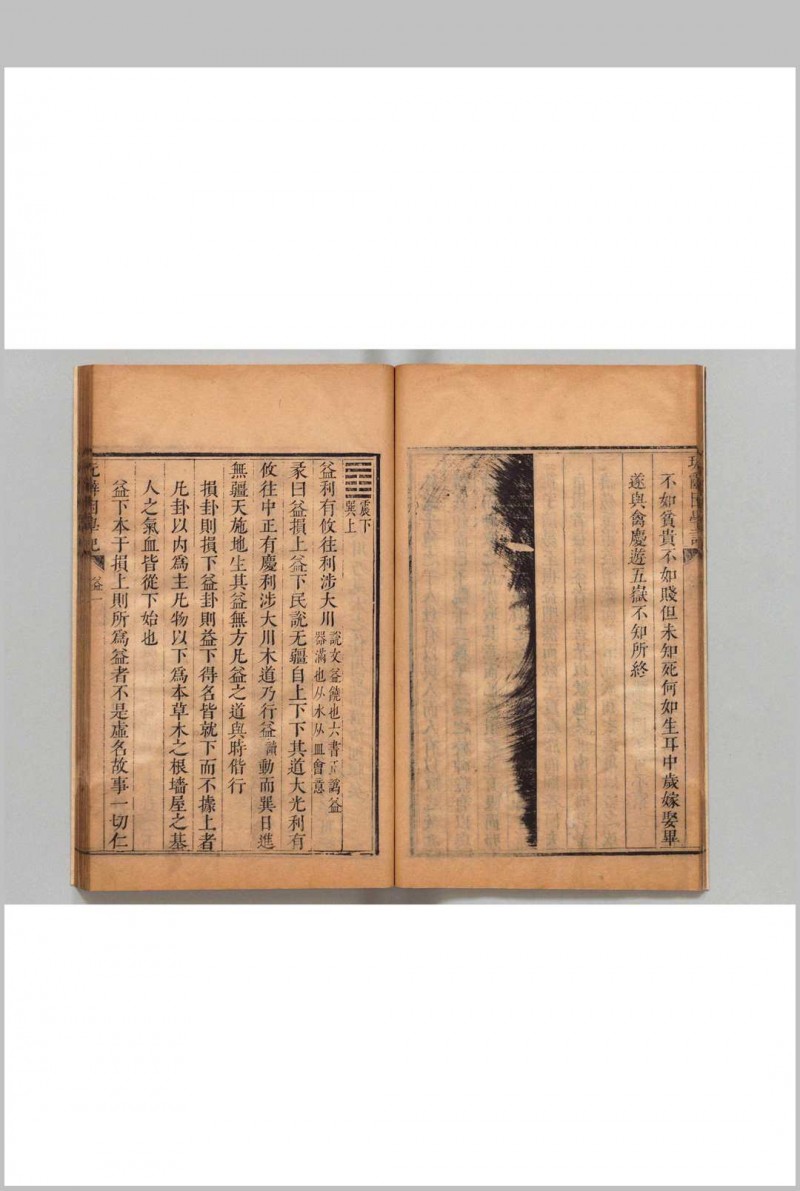 玩辭困學記
不如貧貴不如賤但未知死何如生耳中歲嫁娶畢
遂與禽慶遊五嶽不知所終
䷩
震下
巽上
益利有攸往利涉大川
說文益饒也六書正譌益
器滿也从水从皿會意
彖曰益損上益下民說无疆自上下下其道大光利有
攸往中正有慶利涉大川木道乃行益讀動而巽日進
無疆天施地生其益無方凡益之道與時偕行
損卦則損下益卦則益下得名皆就下而不據上者
凡卦以内爲主凡物以下爲本草木之根墻屋之基
人之氣血皆從下始也
益下本于損上則所爲益者不是虛名故事一切仁
玩辭困學記 益一